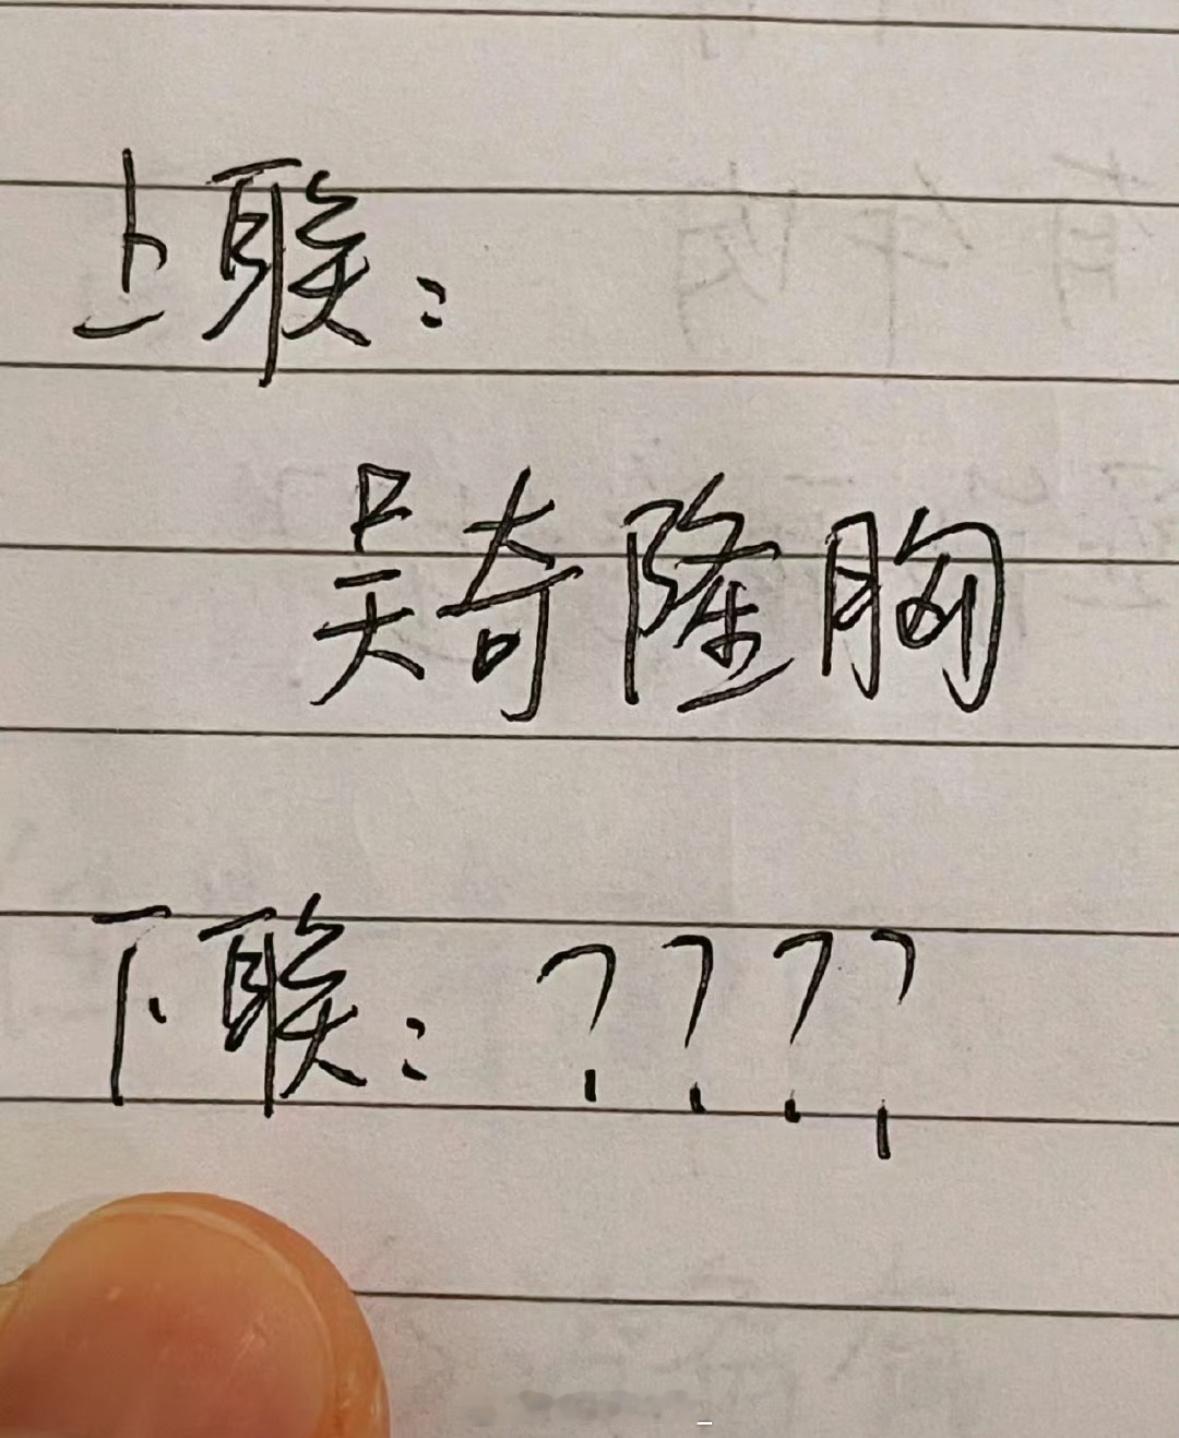 上联：
吴奇隆胸
下联：？？？？